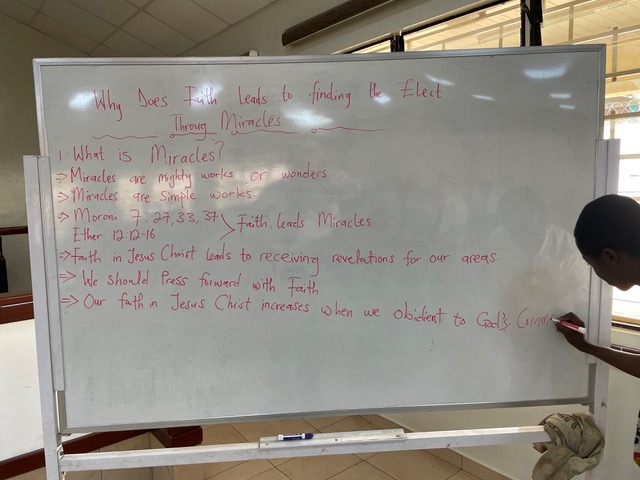 Why Does Faith leads to finding the Elect
Throug Miracles
1 What is Miracles?
⇒ Miracles are mighty works or wonders
⇒ Miracles are simple works.
⇒ Moroni 7:27,33,37 > Faith leads Miracles
Ether 12:12-16
⇒ Faith in Jesus Christ leads to receiving revelations for our areas.
⇒ We should Press forward with Faith
⇒ Our fath in Jesus Christ increases when we obidient to God's Comm